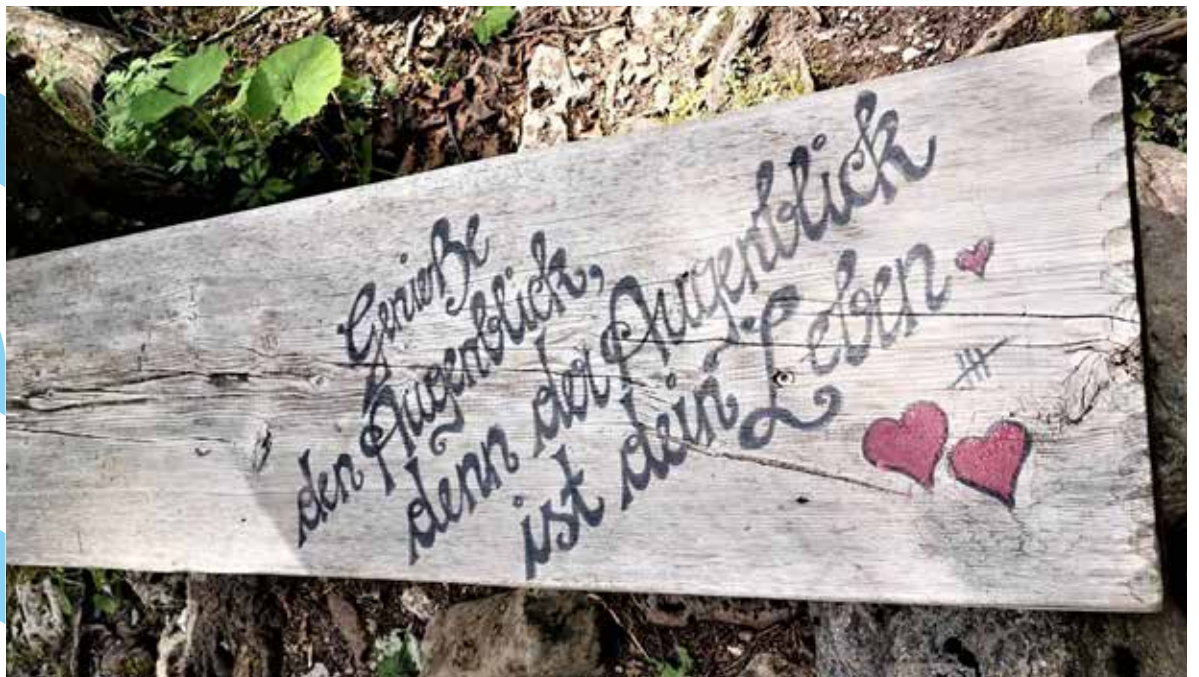 Genieße
den Augenblick,
denn der Augenblick
ist dein Leben